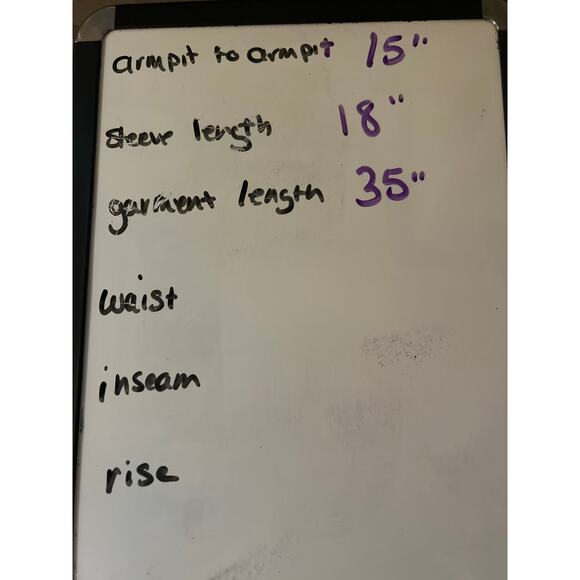 armpit to armpit 15"
sleeve length 18"
garment length 35"
waist
inseam
rise